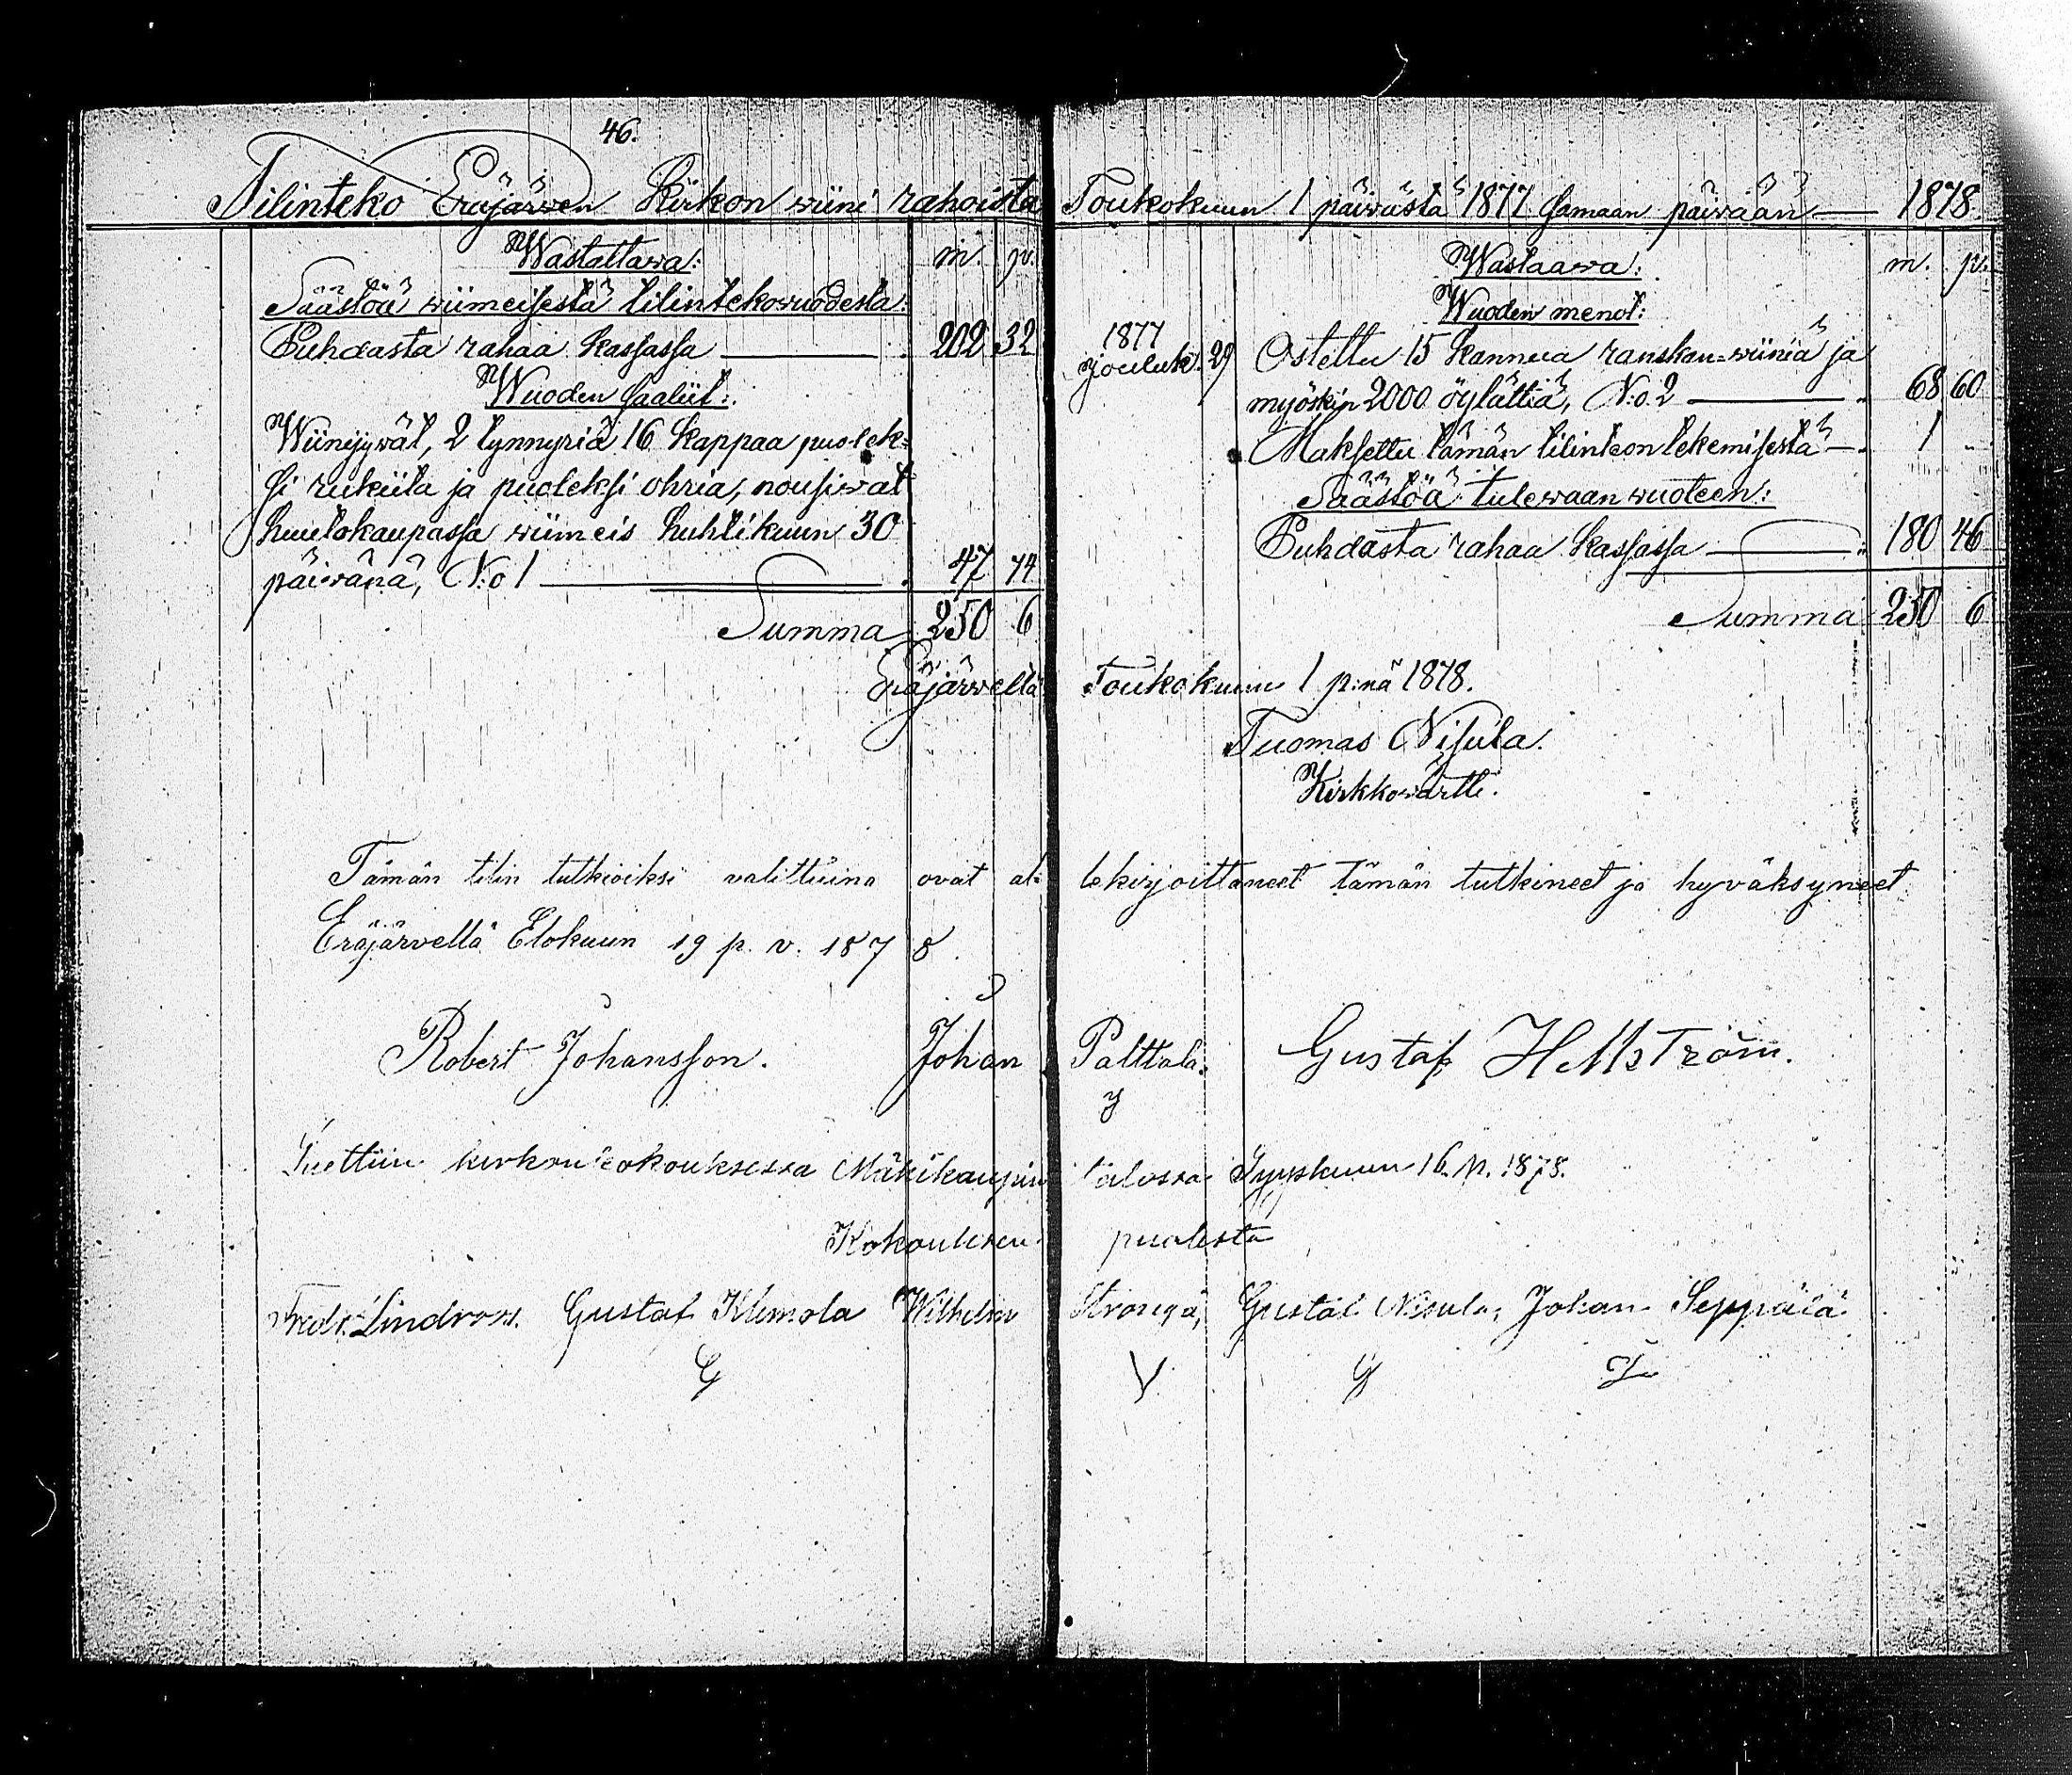 46.
Tilinteko Eräjärwen Kirkon wiini rahoista Toukokuun 1 päiwästä 1877 samaan päiwään — 1878.
Wastattawa: m. p.
Säästöä wiimeisestä tilintekowuodesta:
Puhdasta rahaa kassassa — 202 32
Wuoden saaliit:
Wiinijywät, 2 tynnyriä 16 kappaa puolek-
si rukiita ja puoleksi ohria, nousiwat
huutokaupassa wiimeis huhtikuun 30
päiwänä, N:o 1 — 47 74
Summa 250 6
Wastaawa: m. p.
Wuoden menot:
1877
Jouluk. 29 Ostettu 15 kannua ranskan-wiiniä ja
myöskin 2000 öylättiä, N:o 2 — 68 60
Maksettu tämän tilinteon tekemisestä — 1 "
Säästöä tulewaan wuoteen:
Puhdasta rahaa kassassa — 180 46
Summa 250 6
Eräjärwellä Toukokuun 1 p:nä 1878.
Tuomas Nisula.
Kirkkowärtti.
Tämän tilin tutkioiksi valittuina ovat al-lekirjoittaneet tämän tutkineet ja hyväksyneet
Eräjärvellä Elokuun 19 p. v. 1878.
Robert Johansson. Johan Palttala. Gustaf Hellström.
Luettiin kirkonkokouksessa Mäkikaupin talossa Syyskuun 16. p. 1878.
Kokouksen puolesta
Fredr. Lindroos. Gustaf Klemola Wilhelm Gustaf Nisula, Johan Seppälä